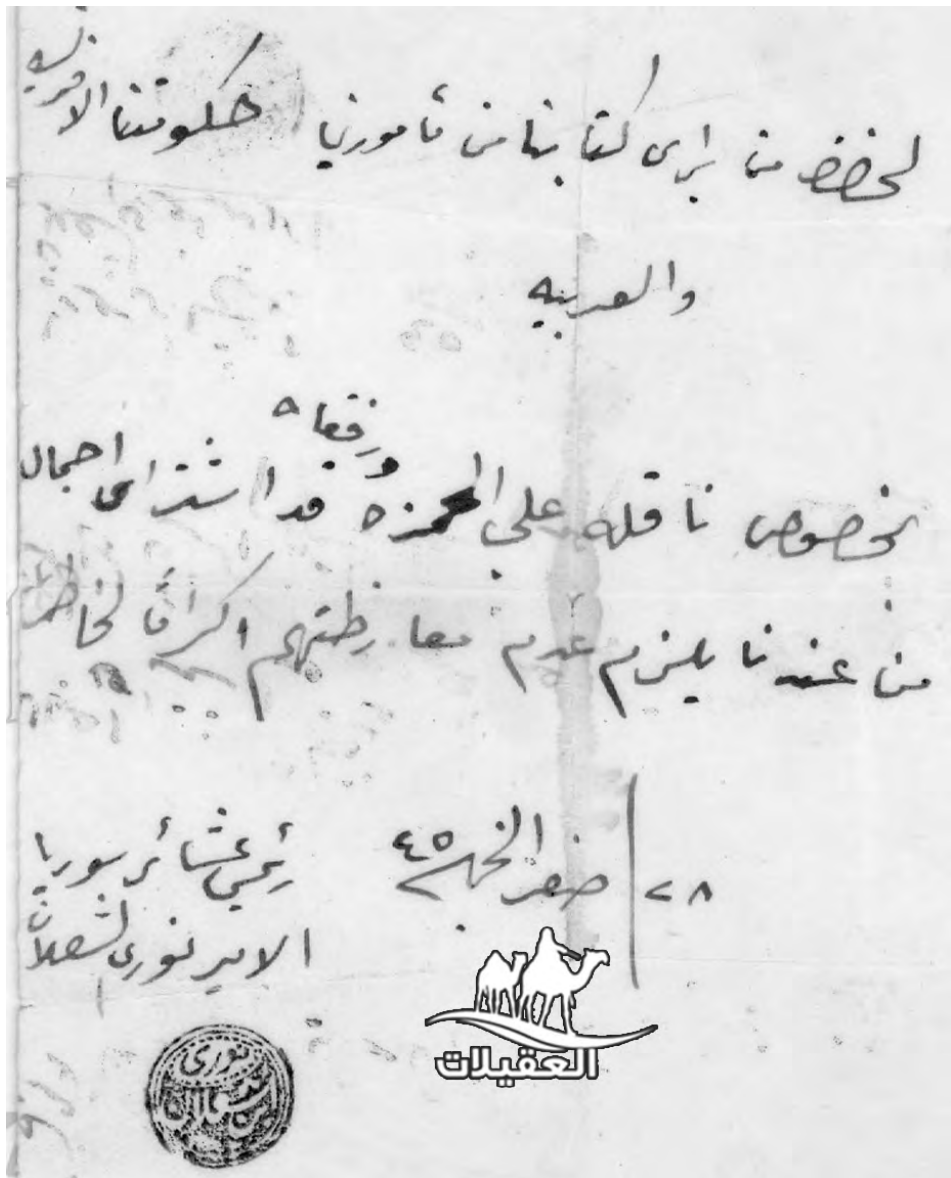 لحضض من يرى كتابنا من مأمورنا حكومتنا الافرنسيه
والعربيه
بخصوص ناقله علي المحمزه ورفقاه قد اشترا اجمال
من عندنا يلزم عدم معارظتهم اكراماً لخاطرنا
٢٨ صفر الخير ٤٥
رئيس عشائر سوريا
الامير نوري الشعلان
نوري الشعلان
العقيلات